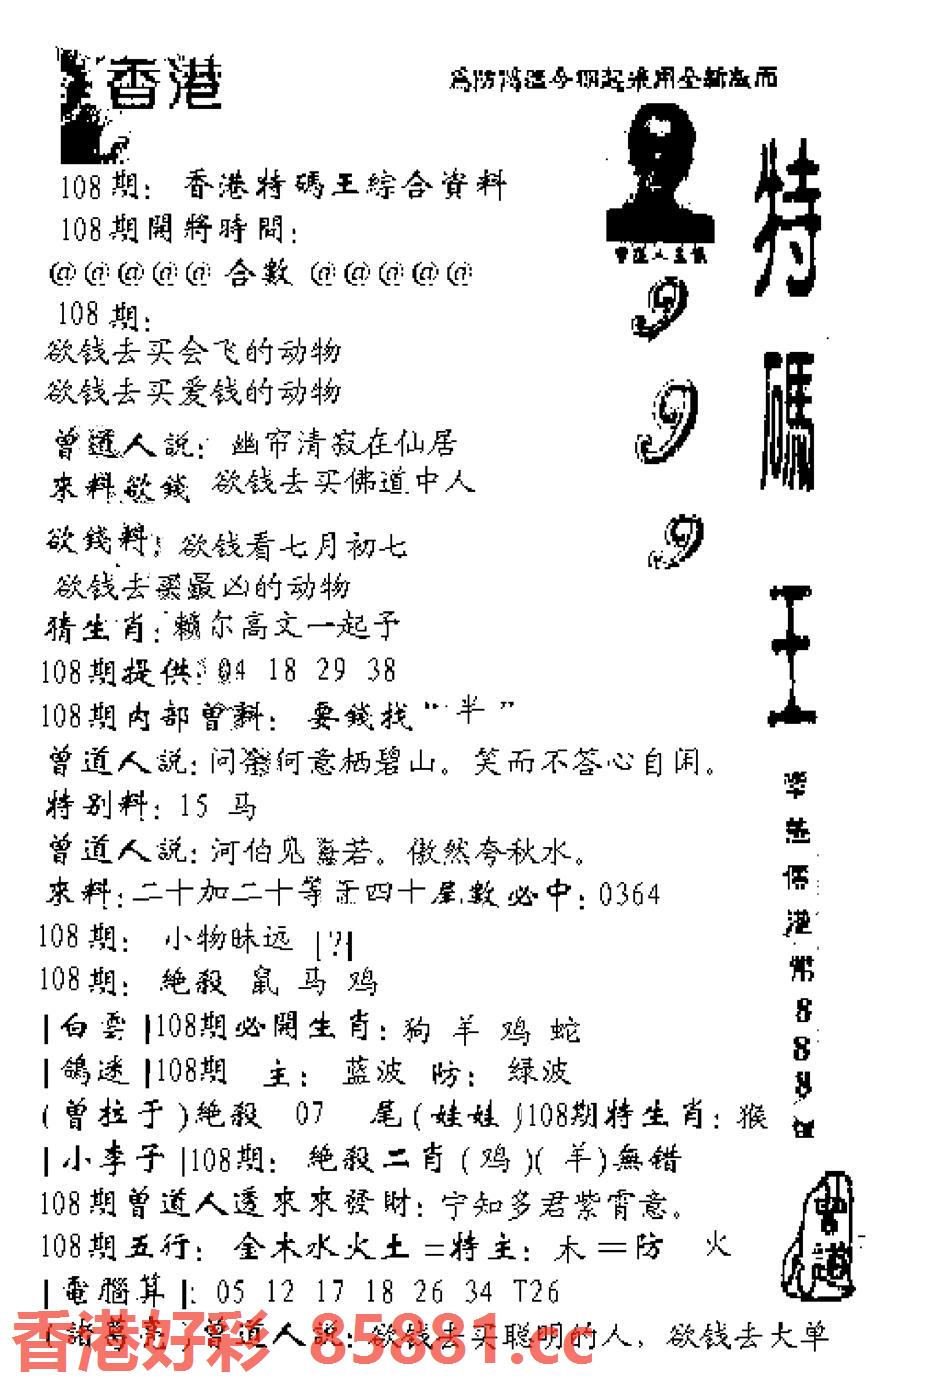 香港
為防滿溫今期起采用全新版面
108期：香港特碼王綜合資料
108期開將時間：
@@@@@合數@@@@@
108期：
欲钱去买会飞的动物
欲钱去买爱钱的动物
曾道人説：幽帘清寂在仙居
來料欲錢 欲钱去买佛道中人
欲錢料：欲钱看七月初七
欲钱去买最凶的动物
猜生肖：赖尔高文一起予
108期提供：04 18 29 38
108期内部曾料：要錢找“半”
曾道人説：问余何意栖碧山。笑而不答心自闲。
特别料：15 马
曾道人説：河伯见海若。傲然夸秋水。
來料：二十加二十等于四十尾數必中：0364
108期：小物昧远 [?]
108期：絶殺 鼠 马 鸡
|白雲|108期必開生肖：狗 羊 鸡 蛇
|鴿迷|108期 主：蓝波 防：绿波
(曾拉于)絶殺 07 尾(娃娃)108期特生肖：猴
|小李子|108期：絶殺二肖(鸡)(羊)無错
108期曾道人透來來發財：宁知多君紫霄意。
108期五行：金木水火土=特主：木=防 火
|電腦算|：05 12 17 18 26 34 T26
(諸葛亮)曾道人説：欲钱去买聪明的人，欲钱去大单
香港好彩 85881.cc
曾道人主儀
9
9
9
特
碼
王
港
幣
888
曾道